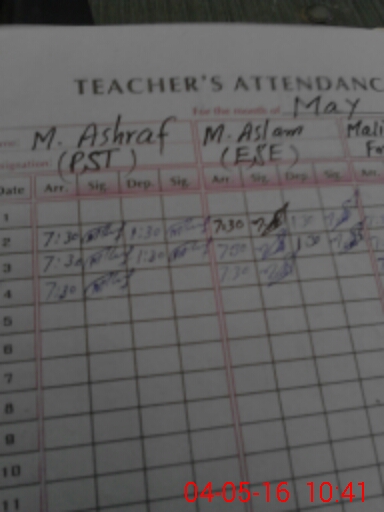 TEACHER'S ATTENDANC
For the month of May
M. Ashraf M. Aslam Mali
(PST) (ESE)
Date Arr. Sig. Dep. Sig. Arr. Sig. Dep. Sig.
1
2 7:30 1:30 7:30 1:30
3 7:30 1:30 7:30 1:30
4 7:30 7:30
5
6
7
8
9
10
11
04-05-16 10:41